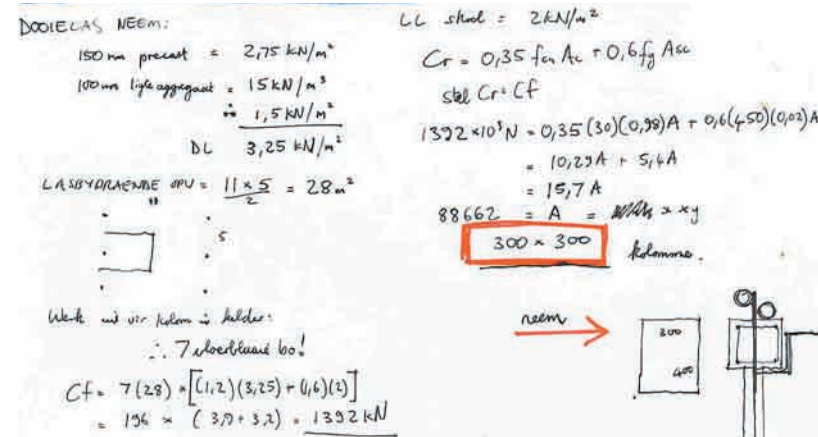 DOOIELAS NEEM:
150 mm precast = 2,75 kN/m²
100 mm ligte aggregaat = 15 kN/m³
∴ 1,5 kN/m²
DL 3,25 kN/m²
LASBYDRAENDE OPV = 11 × 5 / 2 = 28 m²
11
5
Werk uit vir kolom in kelder:
∴ 7 vloerblaaie bo!
Cf = 7(28) × [(1,2)(3,25) + (1,6)(2)]
= 196 × (3,9 + 3,2) = 1392 kN
LL skool = 2 kN/m²
Cr = 0,35 fcu Ac + 0,6 fy Asc
stel Cr = Cf
1392 × 10³ N = 0,35 (30)(0,98)A + 0,6(450)(0,02)A
= 10,29A + 5,4A
= 15,7 A
88662 = A = x × y
300 × 300 kolomme.
neem
300
400